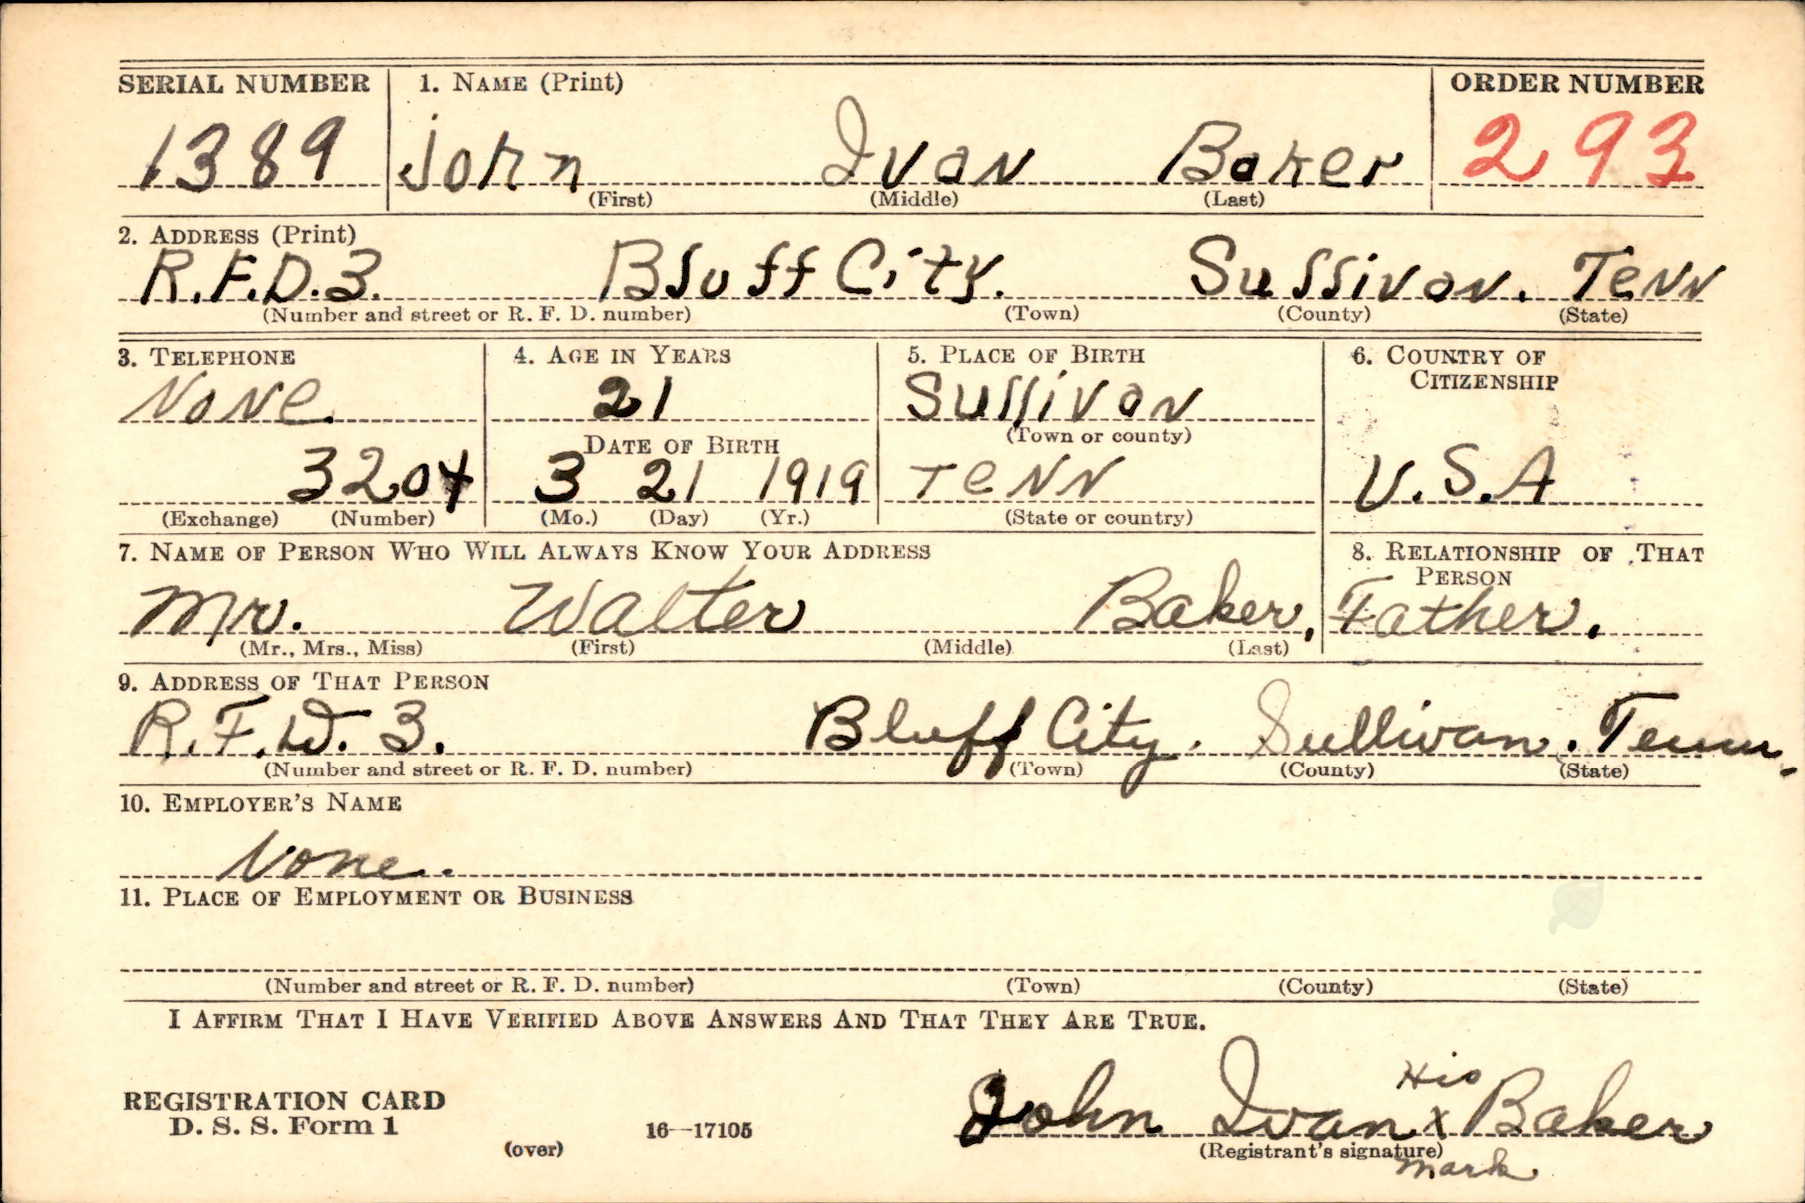 SERIAL NUMBER 1. NAME (Print) ORDER NUMBER
1389 John Ivan Baker 293
(First) (Middle) (Last)
2. ADDRESS (Print)
R.F.D.3. Bluff City. Sullivan. Tenn
(Number and street or R. F. D. number) (Town) (County) (State)
3. TELEPHONE 4. AGE IN YEARS 5. PLACE OF BIRTH 6. COUNTRY OF CITIZENSHIP
None 21 Sullivan
DATE OF BIRTH (Town or county)
3204 3 21 1919 Tenn U.S.A
(Exchange) (Number) (Mo.) (Day) (Yr.) (State or country)
7. NAME OF PERSON WHO WILL ALWAYS KNOW YOUR ADDRESS 8. RELATIONSHIP OF THAT PERSON
Mr. Walter Baker, Father.
(Mr., Mrs., Miss) (First) (Middle) (Last)
9. ADDRESS OF THAT PERSON
R.F.D. 3. Bluff City. Sullivan. Tenn.
(Number and street or R. F. D. number) (Town) (County) (State)
10. EMPLOYER'S NAME
None.
11. PLACE OF EMPLOYMENT OR BUSINESS
(Number and street or R. F. D. number) (Town) (County) (State)
I AFFIRM THAT I HAVE VERIFIED ABOVE ANSWERS AND THAT THEY ARE TRUE.
His
REGISTRATION CARD
D. S. S. Form 1 John Ivan x Baker
(over) 16—17105 (Registrant's signature)
mark